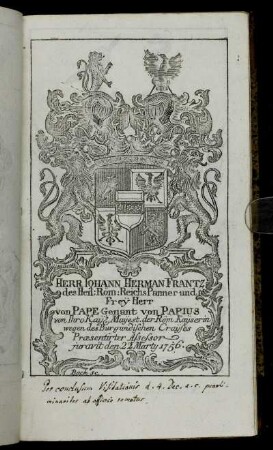 HERR IOHANN HERMAN FRANTZ
des Heil: Röm: Reichs Panner und
Freÿ Herr
von PAPE Genant von PAPIUS
von Ihro Kaÿs: Majest. der Röm: Kaiserin
wegen des Burgundischen Craÿses
Præsentirter Assessor
juravit den 24 Marty 1756.
Per conclusum Visitationis d. 4. Dec. a. c.
ab officio remotus.